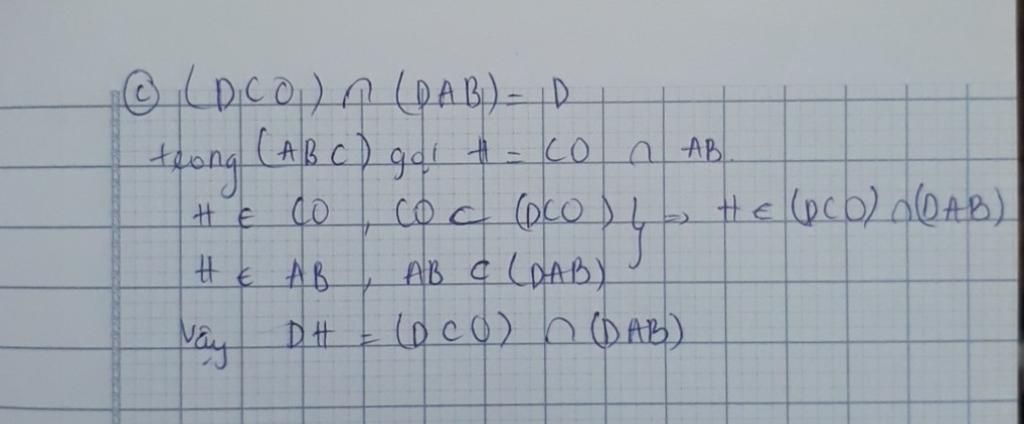 ⓒ (DCO) ∩ (DAB) = D
trong (ABC) gọi H = CO ∩ AB
H ∈ CO , CO ⊂ (DCO) } => H ∈ (DCO) ∩ (DAB)
H ∈ AB , AB ⊂ (DAB)
Vậy DH = (DCO) ∩ (DAB)